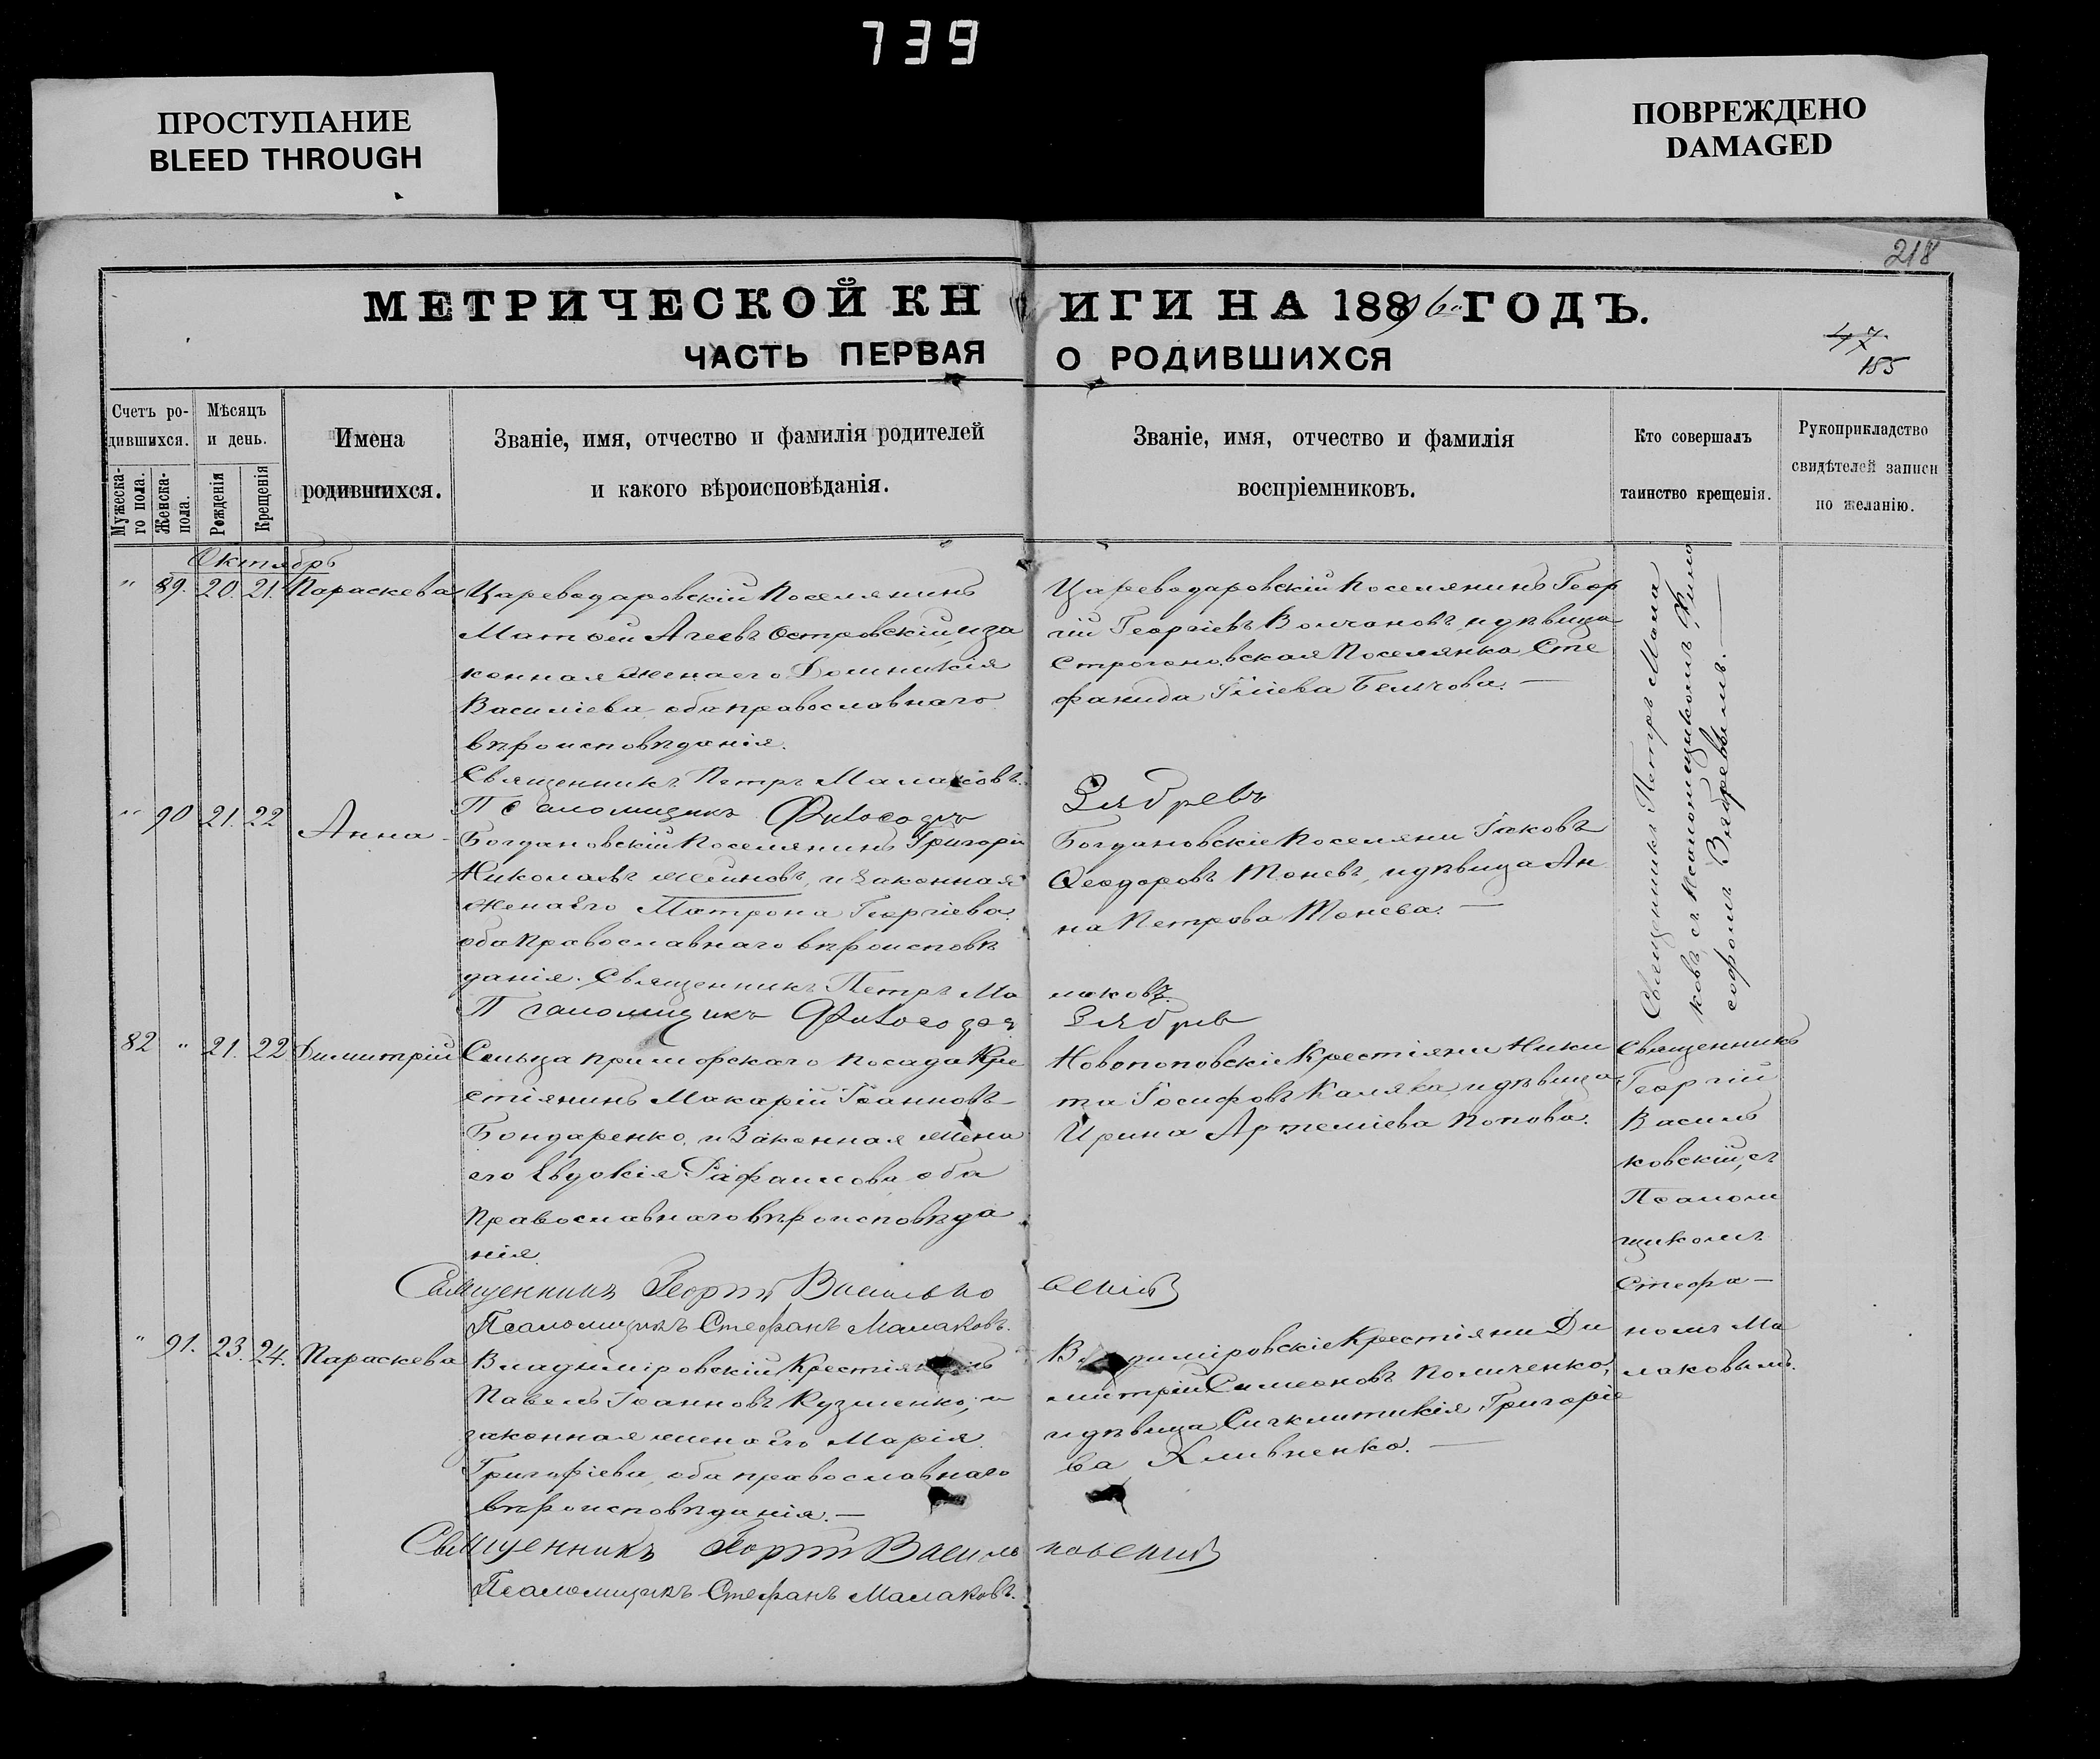 739
ПРОСТУПАНИЕ
BLEED THROUGH
ПОВРЕЖДЕНО
DAMAGED
218
МЕТРИЧЕСКОЙ КНИГИ НА 1896 ГОДЪ.
ЧАСТЬ ПЕРВАЯ О РОДИВШИХСЯ
47
185
Счетъ ро-
дившихся.
Мужеска-
го пола.
Женска-
пола.
Мѣсяцъ
и день.
Рожденія
Крещенія
Имена
родившихся.
Званіе, имя, отчество и фамилія родителей
и какого вѣроисповѣданія.
Званіе, имя, отчество и фамилія
воспріемниковъ.
Кто совершалъ
таинство крещенія.
Рукоприкладство
свидѣтелей записи
по желанію.
Октябрь
" 89. 20. 21. Параскева
Цареводаровскій Поселянинъ
Матѳей Агеевъ Островскій, и за
конная жена его Домникія
Василіева оба православнаго
вѣроисповѣданія.
Священникъ Петръ Малаковъ.
Псаломщикъ
Цареводаровскій Поселянинъ Геор
гій Георгіевъ Волчановъ, и дѣвица
Строгоновская Поселянка Сте
фанида Иліева Бельчова. —
Священникъ Петръ Мала
ковъ съ Псаломщикомъ Фило
софомъ
" 90 21. 22 Анна
Богдановскій Поселянинъ Григорій
Николаевъ, и законная
жена его Матрона Георгіева
оба Православнаго вѣроисповѣ
данія. Священникъ Петръ Ма
лаковъ.
Псаломщикъ
Богдановскіе Поселяни Іаковъ
Ѳеодоровъ Тоневъ, и дѣвица Ан
на Петрова Тонева. —
82 " 21. 22 Димитрій
Сельца Приморскаго посада Кре
стіянинъ Макарій Іоанновъ
Бондаренко, и Законная жена
его Евдокія оба
Православнаго вѣроисповѣда
нія.
Священникъ Георгій Василько
вскій
Псаломщикъ Стефанъ Малаковъ.
Новопоповскіе Крестіяни Ники
та Іосифовъ Каляка, и дѣвица
Ирина Артеміева Попова.
Священникъ
Георгій
Василь
ковскій, съ
Псалом
щикомъ
Стефа—
номъ Ма
лаковымъ.
" 91. 23. 24. Параскева
Владиміровскій Крестіянинъ
Павелъ Іоанновъ Кузменко, и
законная жена его Марія
Григоріева, оба православнаго
вѣроисповѣданія. —
Священникъ Георгій Василь
ковскій
Псаломщикъ Стефанъ Малаковъ.
Владиміровскіе Крестіяни Ди
митрій Симеоновъ
и дѣвица Сигклитикія Григоріе
ва Кливненко. —